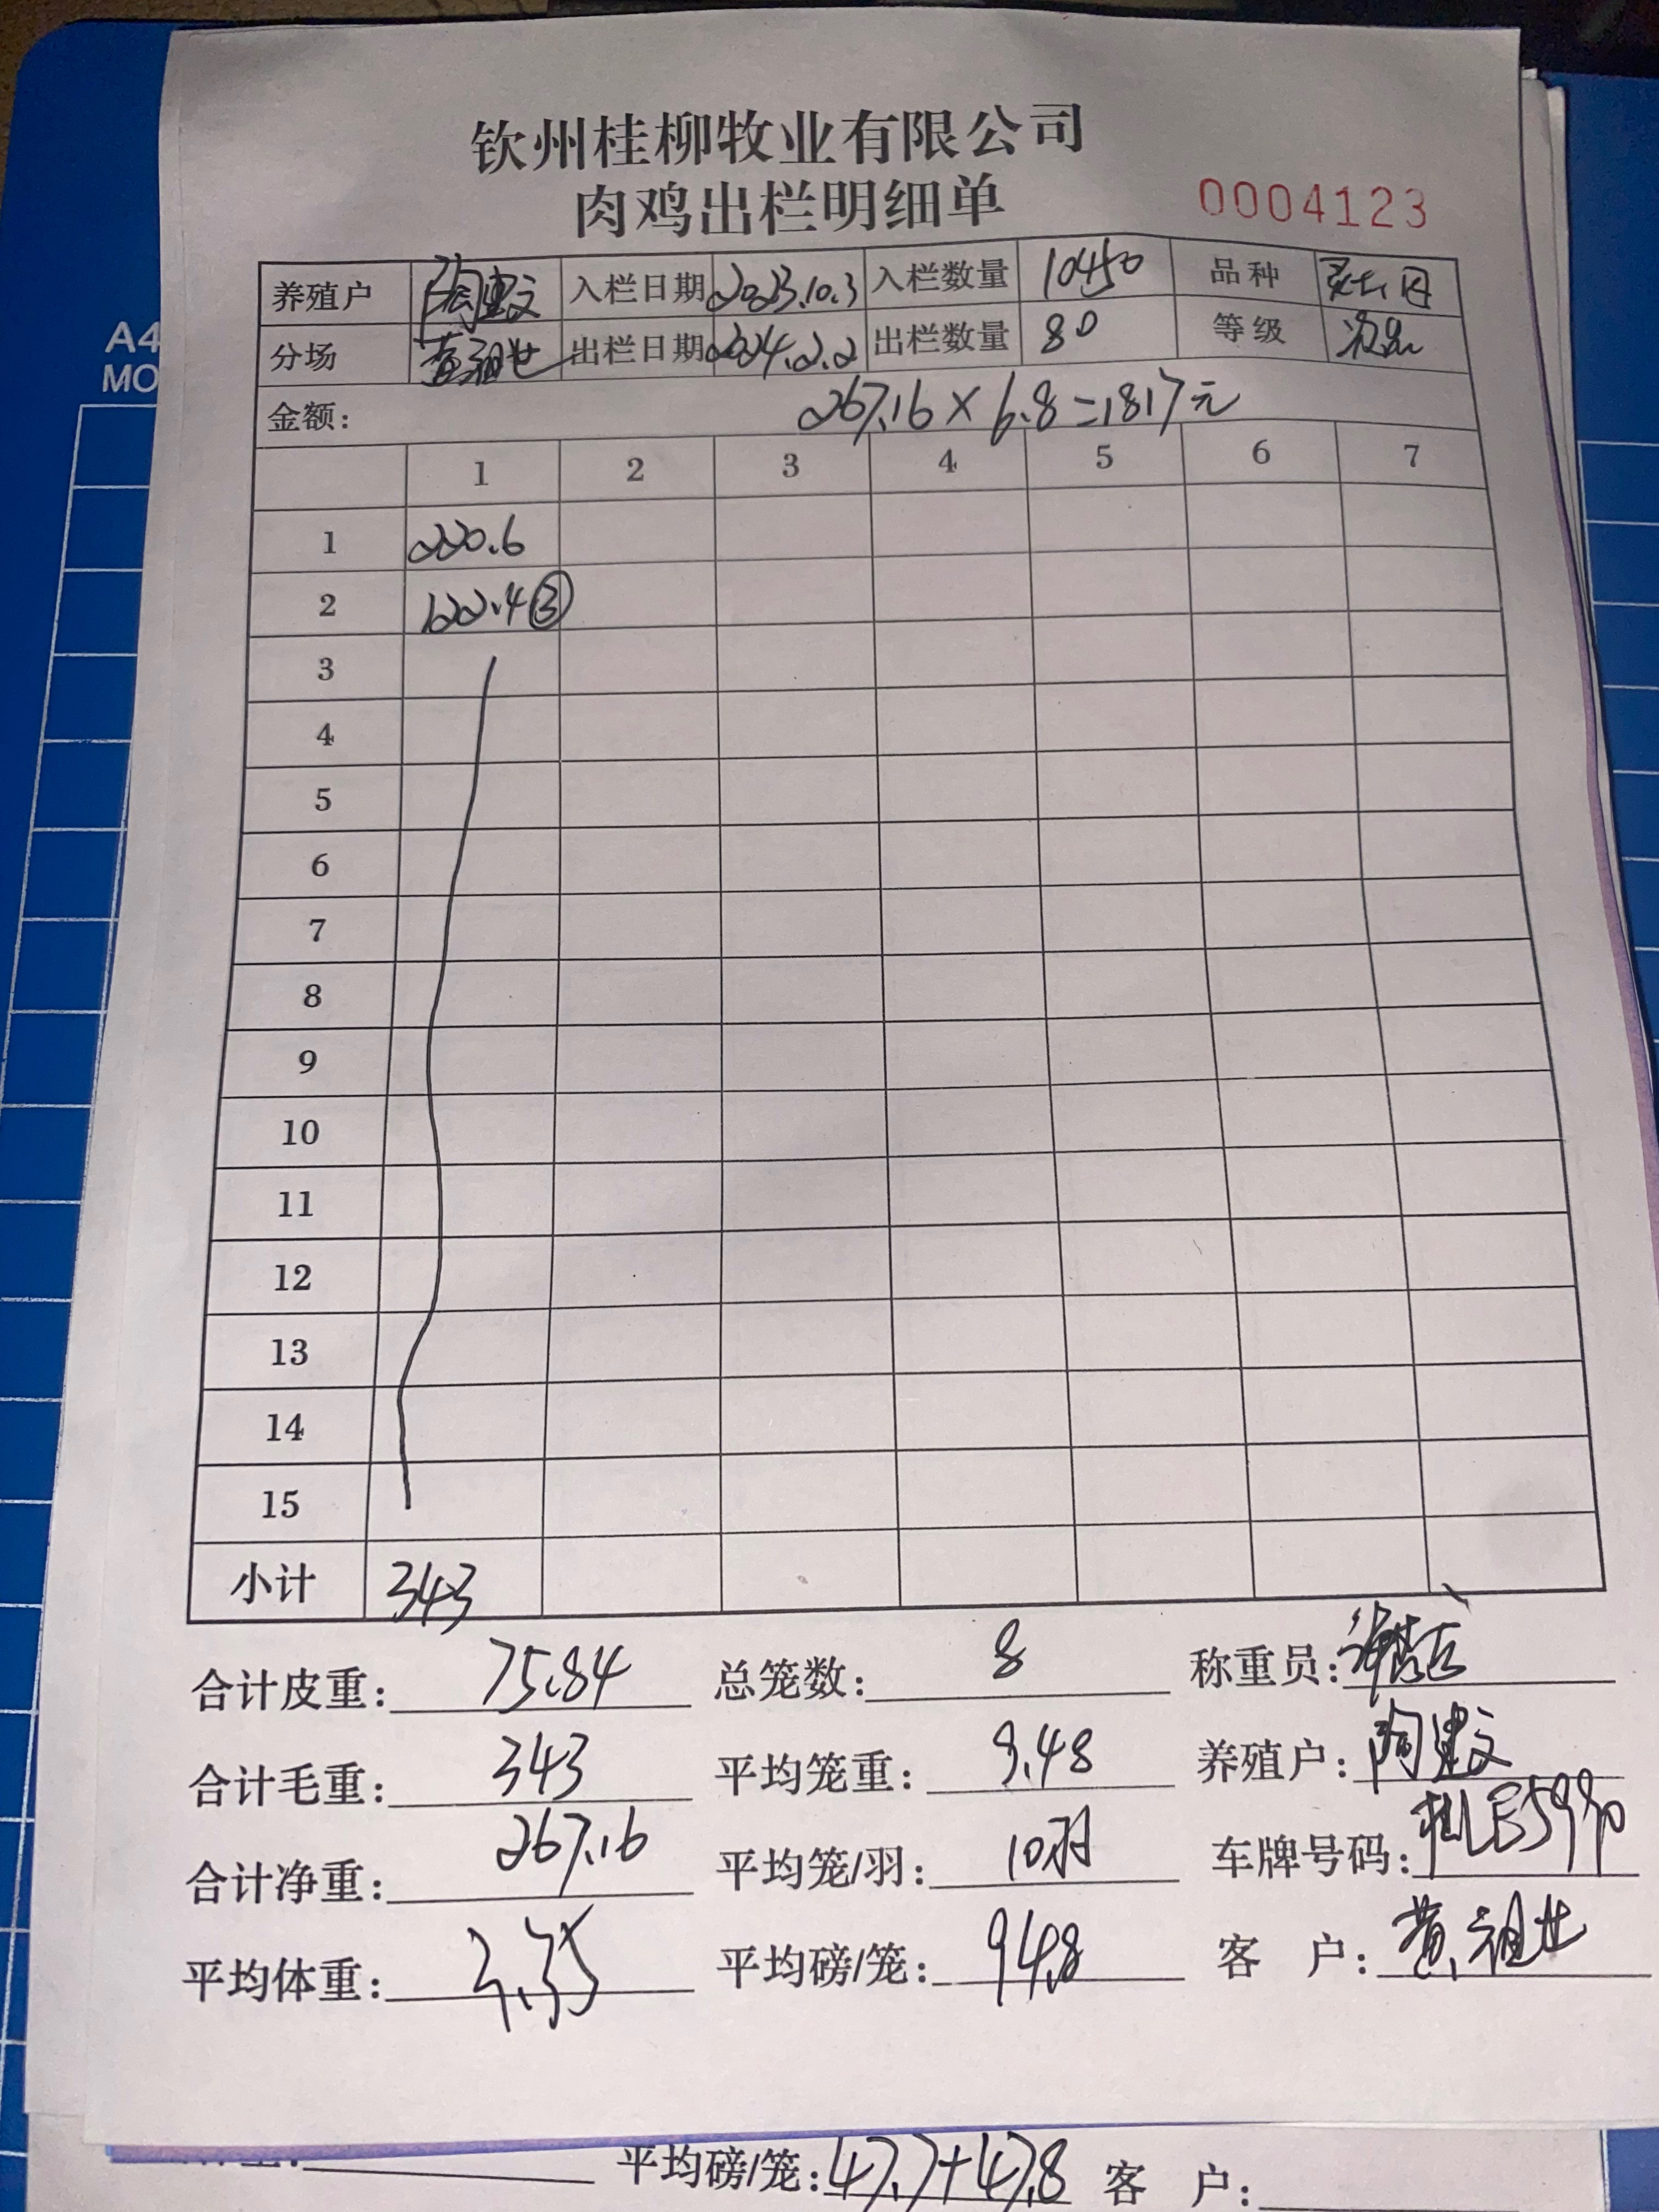 钦州桂柳牧业有限公司
肉鸡出栏明细单 0004123
养殖户 陶建文 入栏日期 2023.10.3 入栏数量 10450 品种
分场 黄祖世 出栏日期 2024.2.2 出栏数量 80 等级 次品
金额: 267.16×6.8=1817元
1 2 3 4 5 6 7
1 220.6
2 122.4 ③
3
4
5
6
7
8
9
10
11
12
13
14
15
小计 343
合计皮重: 75.84 总笼数: 8 称重员:
合计毛重: 343 平均笼重: 9.48 养殖户: 陶建文
合计净重: 267.16 平均笼/羽: 10羽 车牌号码:
平均体重: 3.35 平均磅/笼: 94.8 客 户: 黄祖世
平均磅/笼: 47.7+47.8 客 户:
A4
MO